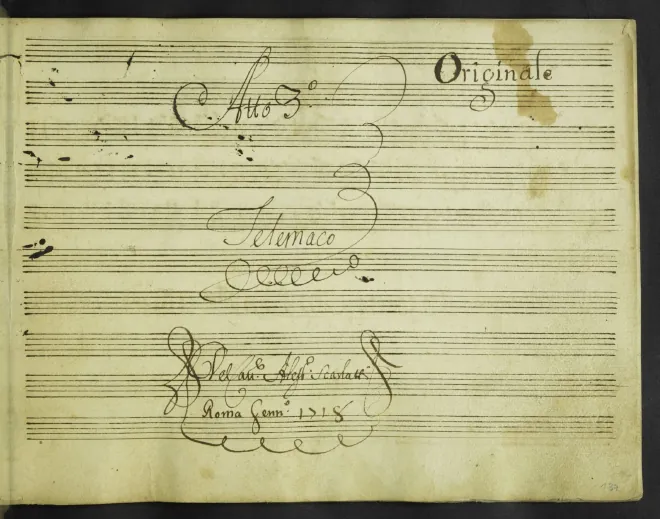 Originale
Atto 3º
Telemaco
Del Cau.º Aless.º Scarlatti
Roma Genn.º 1718